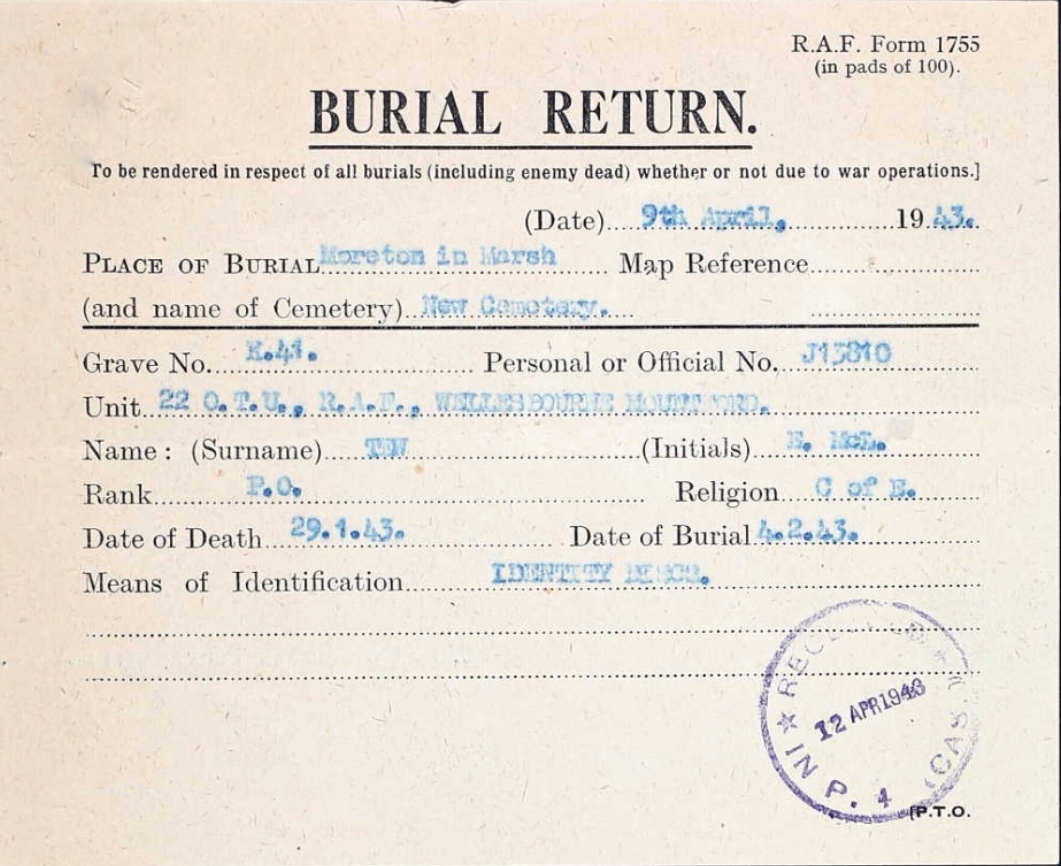 R.A.F. Form 1755
(in pads of 100).
BURIAL RETURN.
To be rendered in respect of all burials (including enemy dead) whether or not due to war operations.]
(Date) 9th April, 19 43.
PLACE OF BURIAL Moreton in Marsh Map Reference
(and name of Cemetery) New Cemetery.
Grave No. K.41. Personal or Official No. J13810
Unit 22 O.T.U., R.A.F., WELLESBOURNE MOUNTFORD.
Name: (Surname) TEW (Initials) McL.
Rank P.O. Religion C of E.
Date of Death 29.1.43. Date of Burial 4.2.43.
Means of Identification IDENTITY DISCS.
RECEIVED
12 APR 1943
IN P. 4 (CAS
[P.T.O.